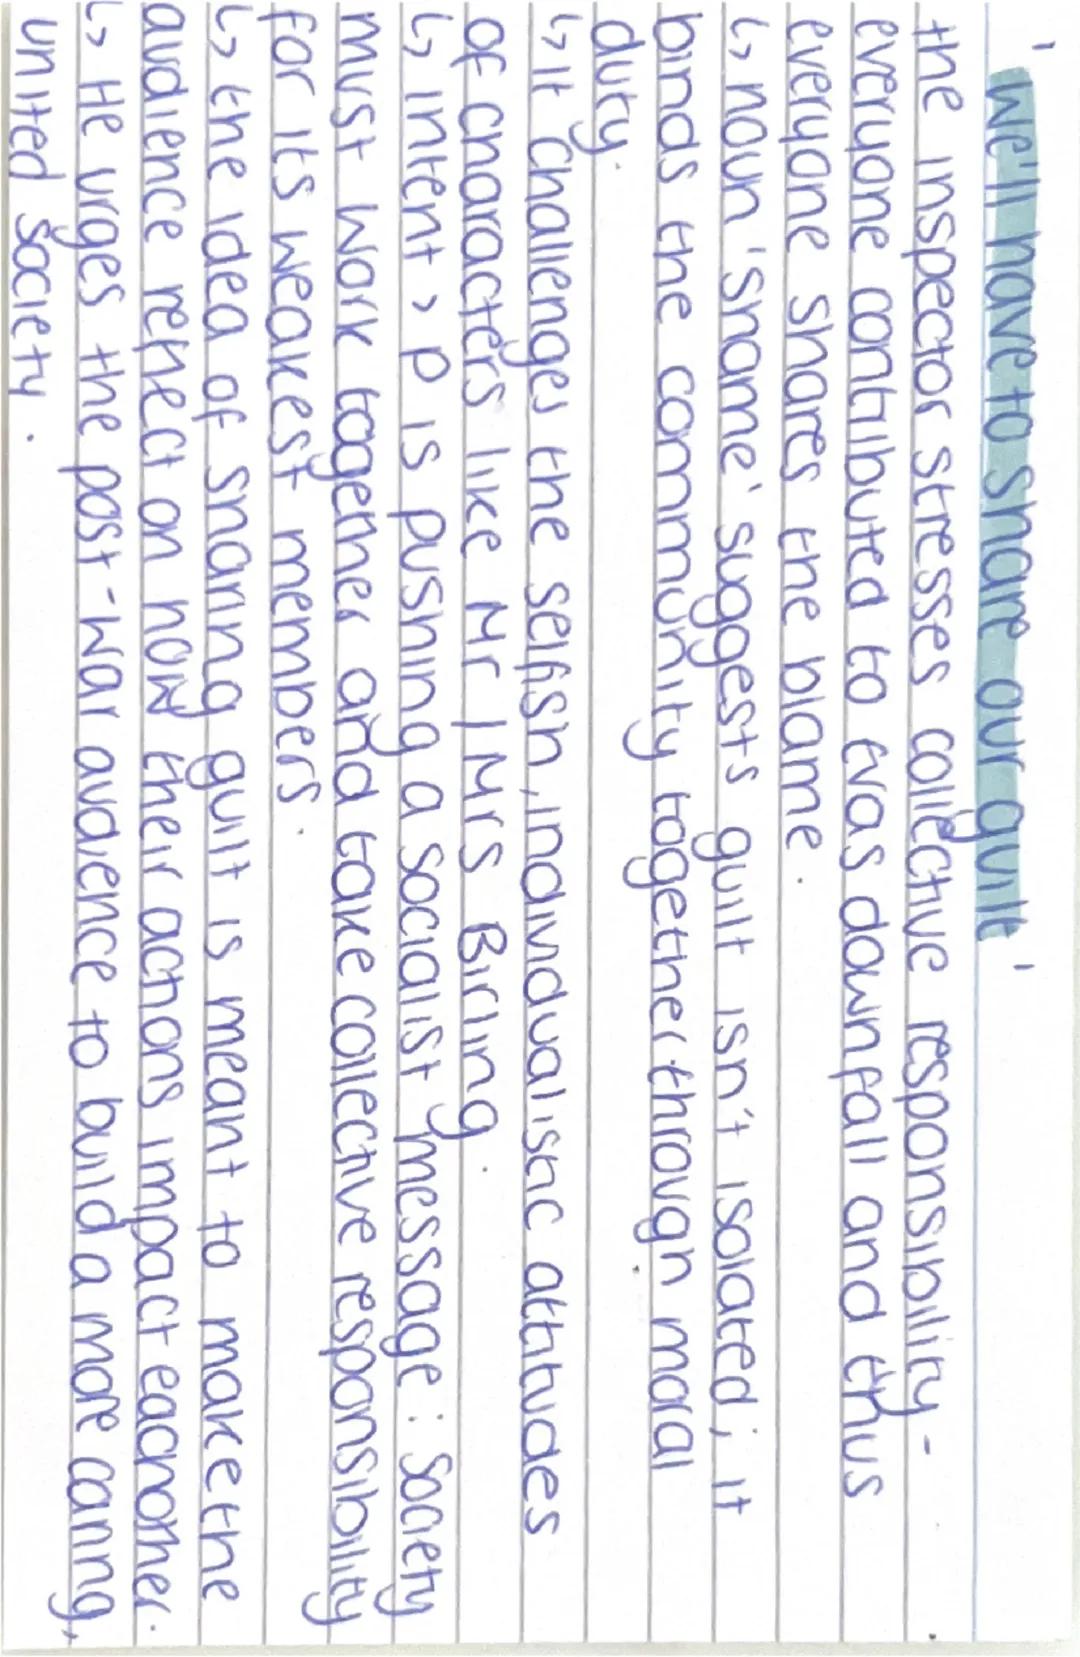 'we'll have to share our guilt'
the inspector stresses collective responsibility -
everyone contributed to Evas downfall and thus
everyone shares the blame.
↳ noun 'shame' suggests guilt isn't isolated; it
binds the community together through moral
duty.
↳ It challenges the selfish, individualistic attitudes
of characters like Mr / Mrs Birling.
↳ intent > P is pushing a socialist message : society
must work together and take collective responsibility
for its weakest members.
↳ the idea of sharing guilt is meant to make the
audience reflect on how their actions impact eachother.
↳ He urges the post-war audience to build a more caring,
united society.